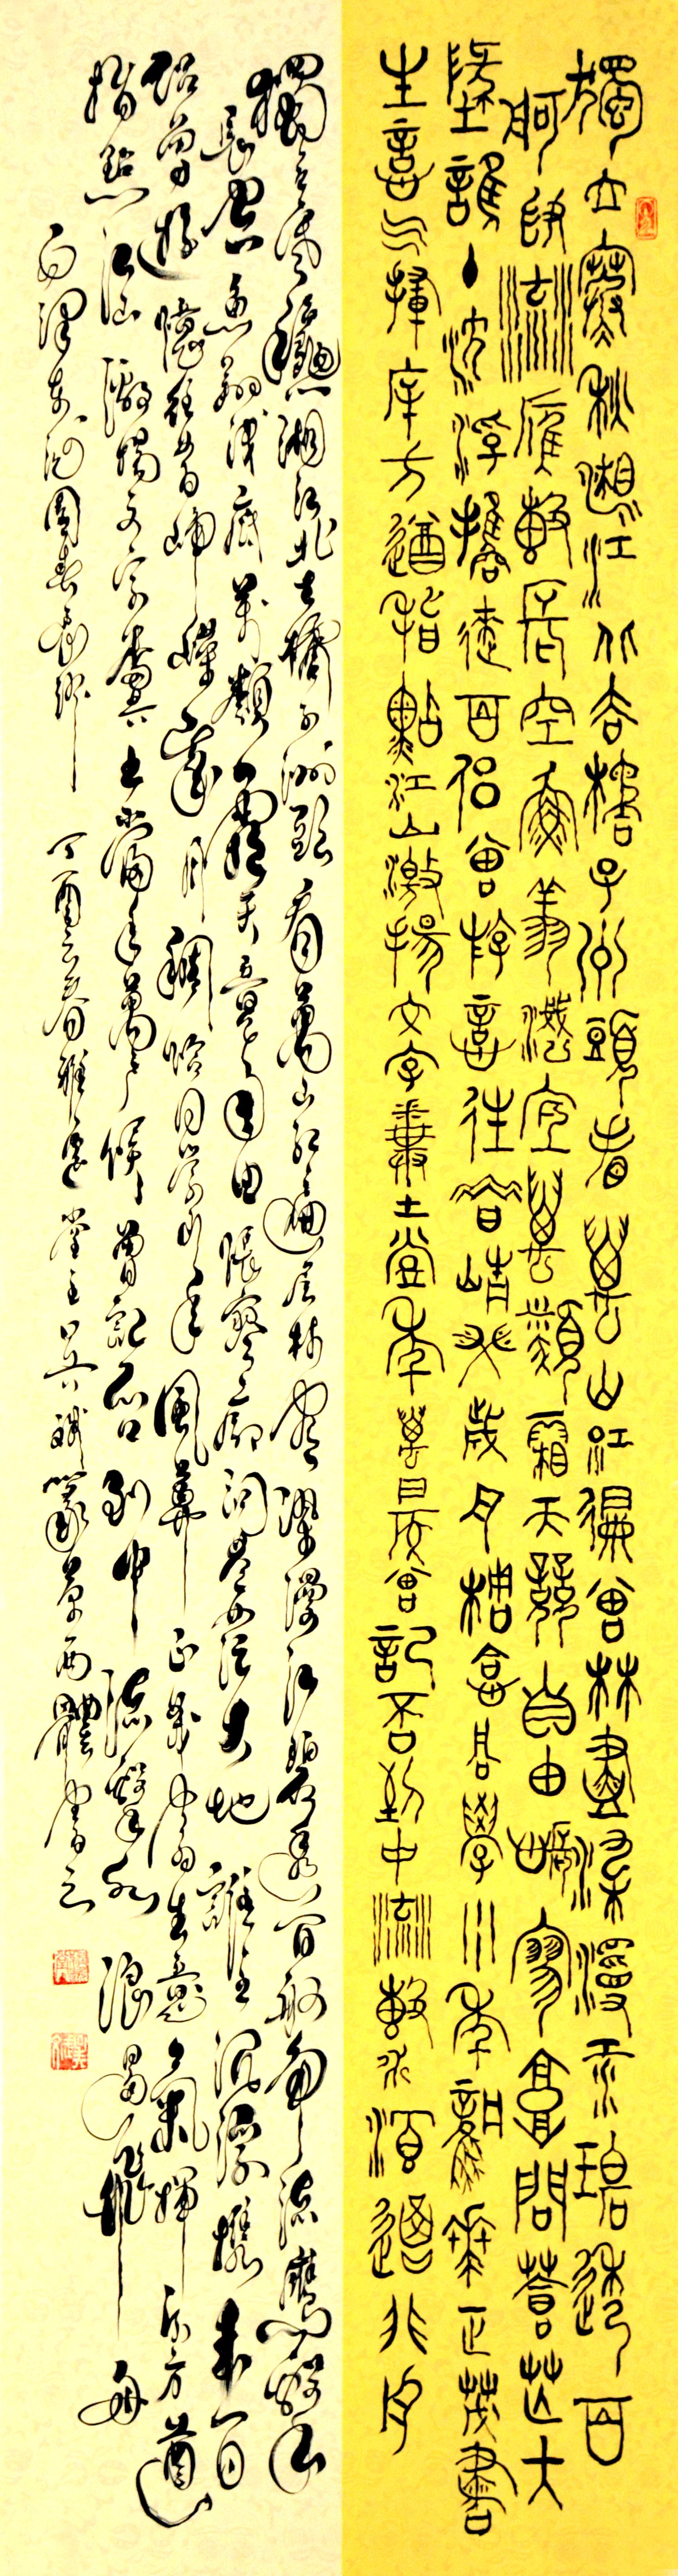 獨立寒秋湘江北去橘子洲頭看萬山紅遍層林盡染漫江碧透百
舸爭流鷹擊長空魚翔淺底萬類霜天競自由悵寥廓問蒼茫大
地誰主沉浮攜來百侶曾游憶往昔崢嶸歲月稠恰同學少年風華正茂書
生意氣揮斥方遒指點江山激揚文字糞土當年萬戶侯曾記否到中流擊水浪遏飛舟
獨立寒秋湘江北去橘子洲頭看萬山紅遍層林盡染漫江碧透百舸爭流鷹擊
長空魚翔淺底萬類霜天競自由悵寥廓問蒼茫大地誰主沉浮攜來百
侶曾游憶往昔崢嶸歲月稠恰同學少年風華正茂書生意氣揮斥方遒
指點江山激揚文字糞土當年萬戶侯曾記否到中流擊水浪遏飛舟
毛澤東詞園春長沙 丁酉之春雅逸堂主篆草两體書之